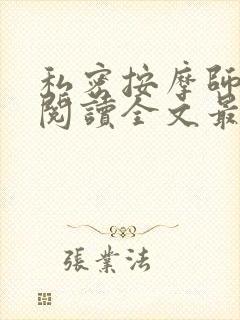 私密按摩師
閱讀全文最
張業法